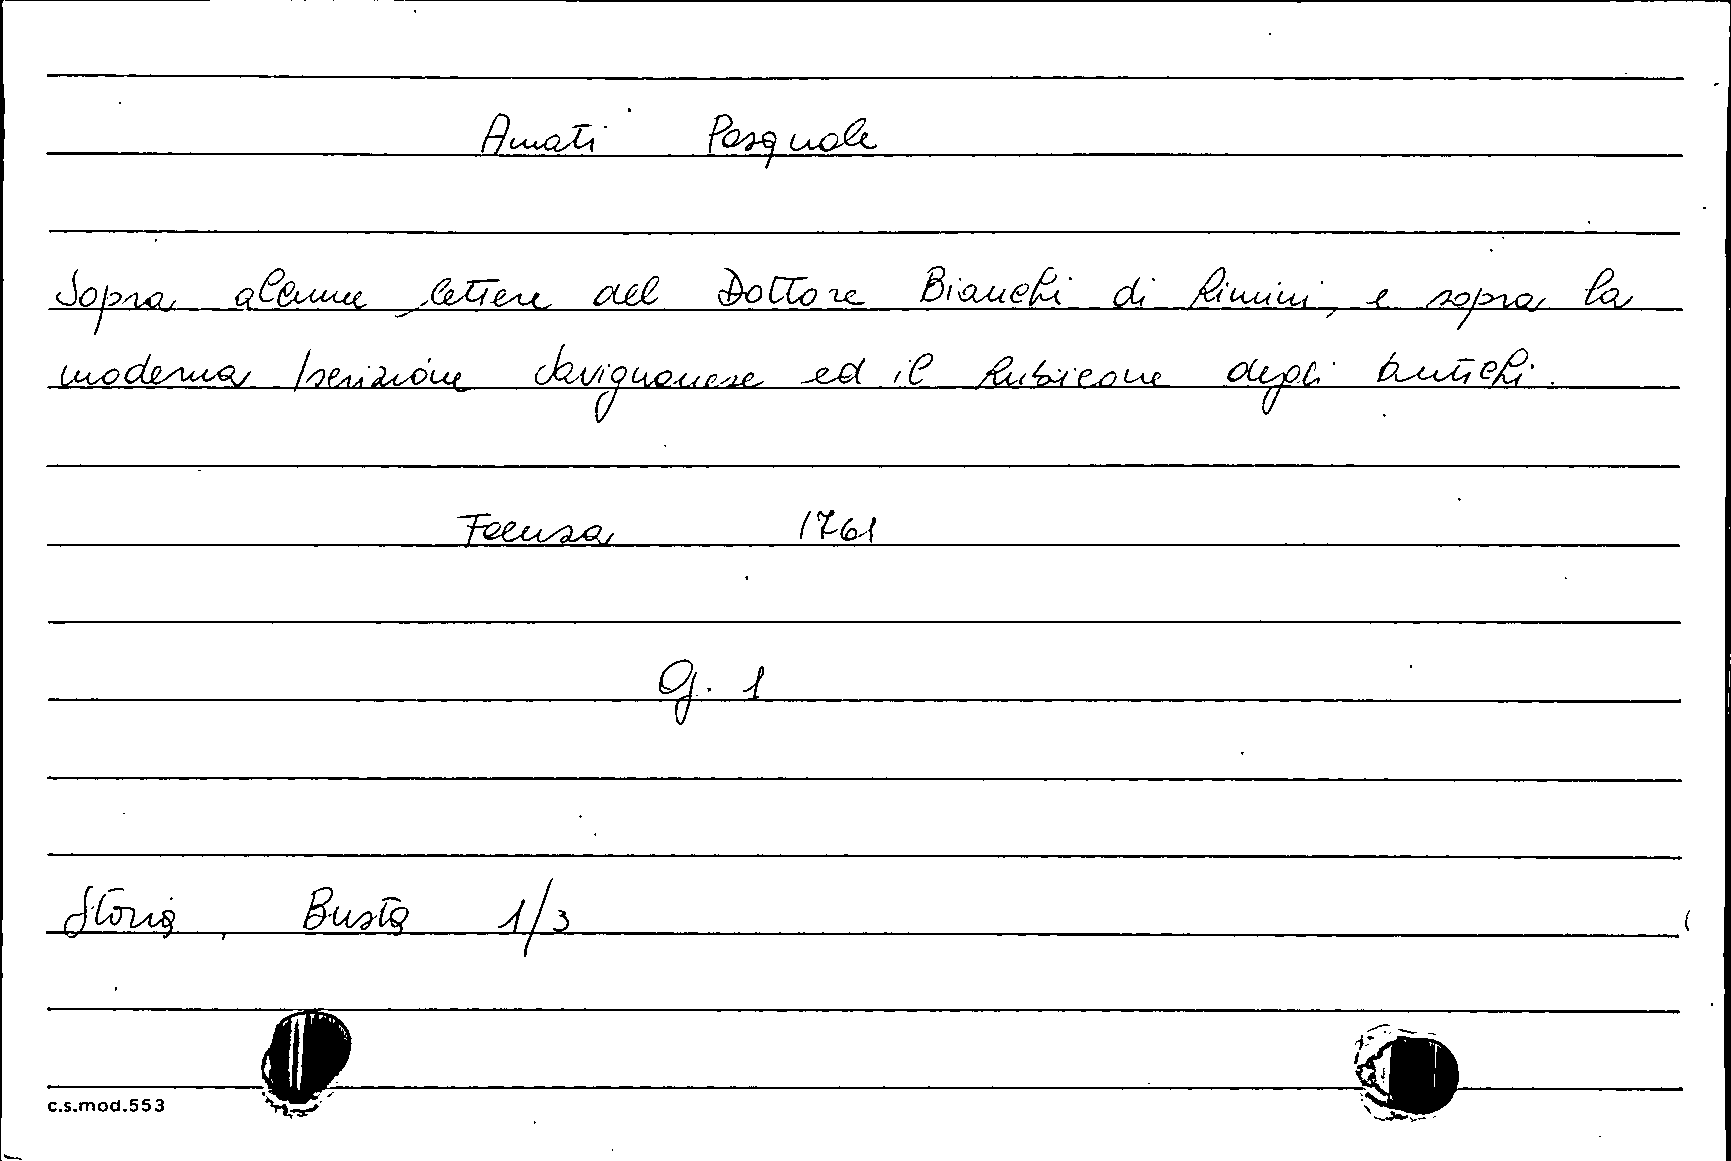 Amati Pasquale
Sopra alcune lettere del Dottore Bianchi di Rimini, e sopra la
moderna Iscrizione Savignanese ed il Rubicone degli Antichi.
Faenza 1761
G. 1
Storia, Busta 1/3
c.s.mod.553